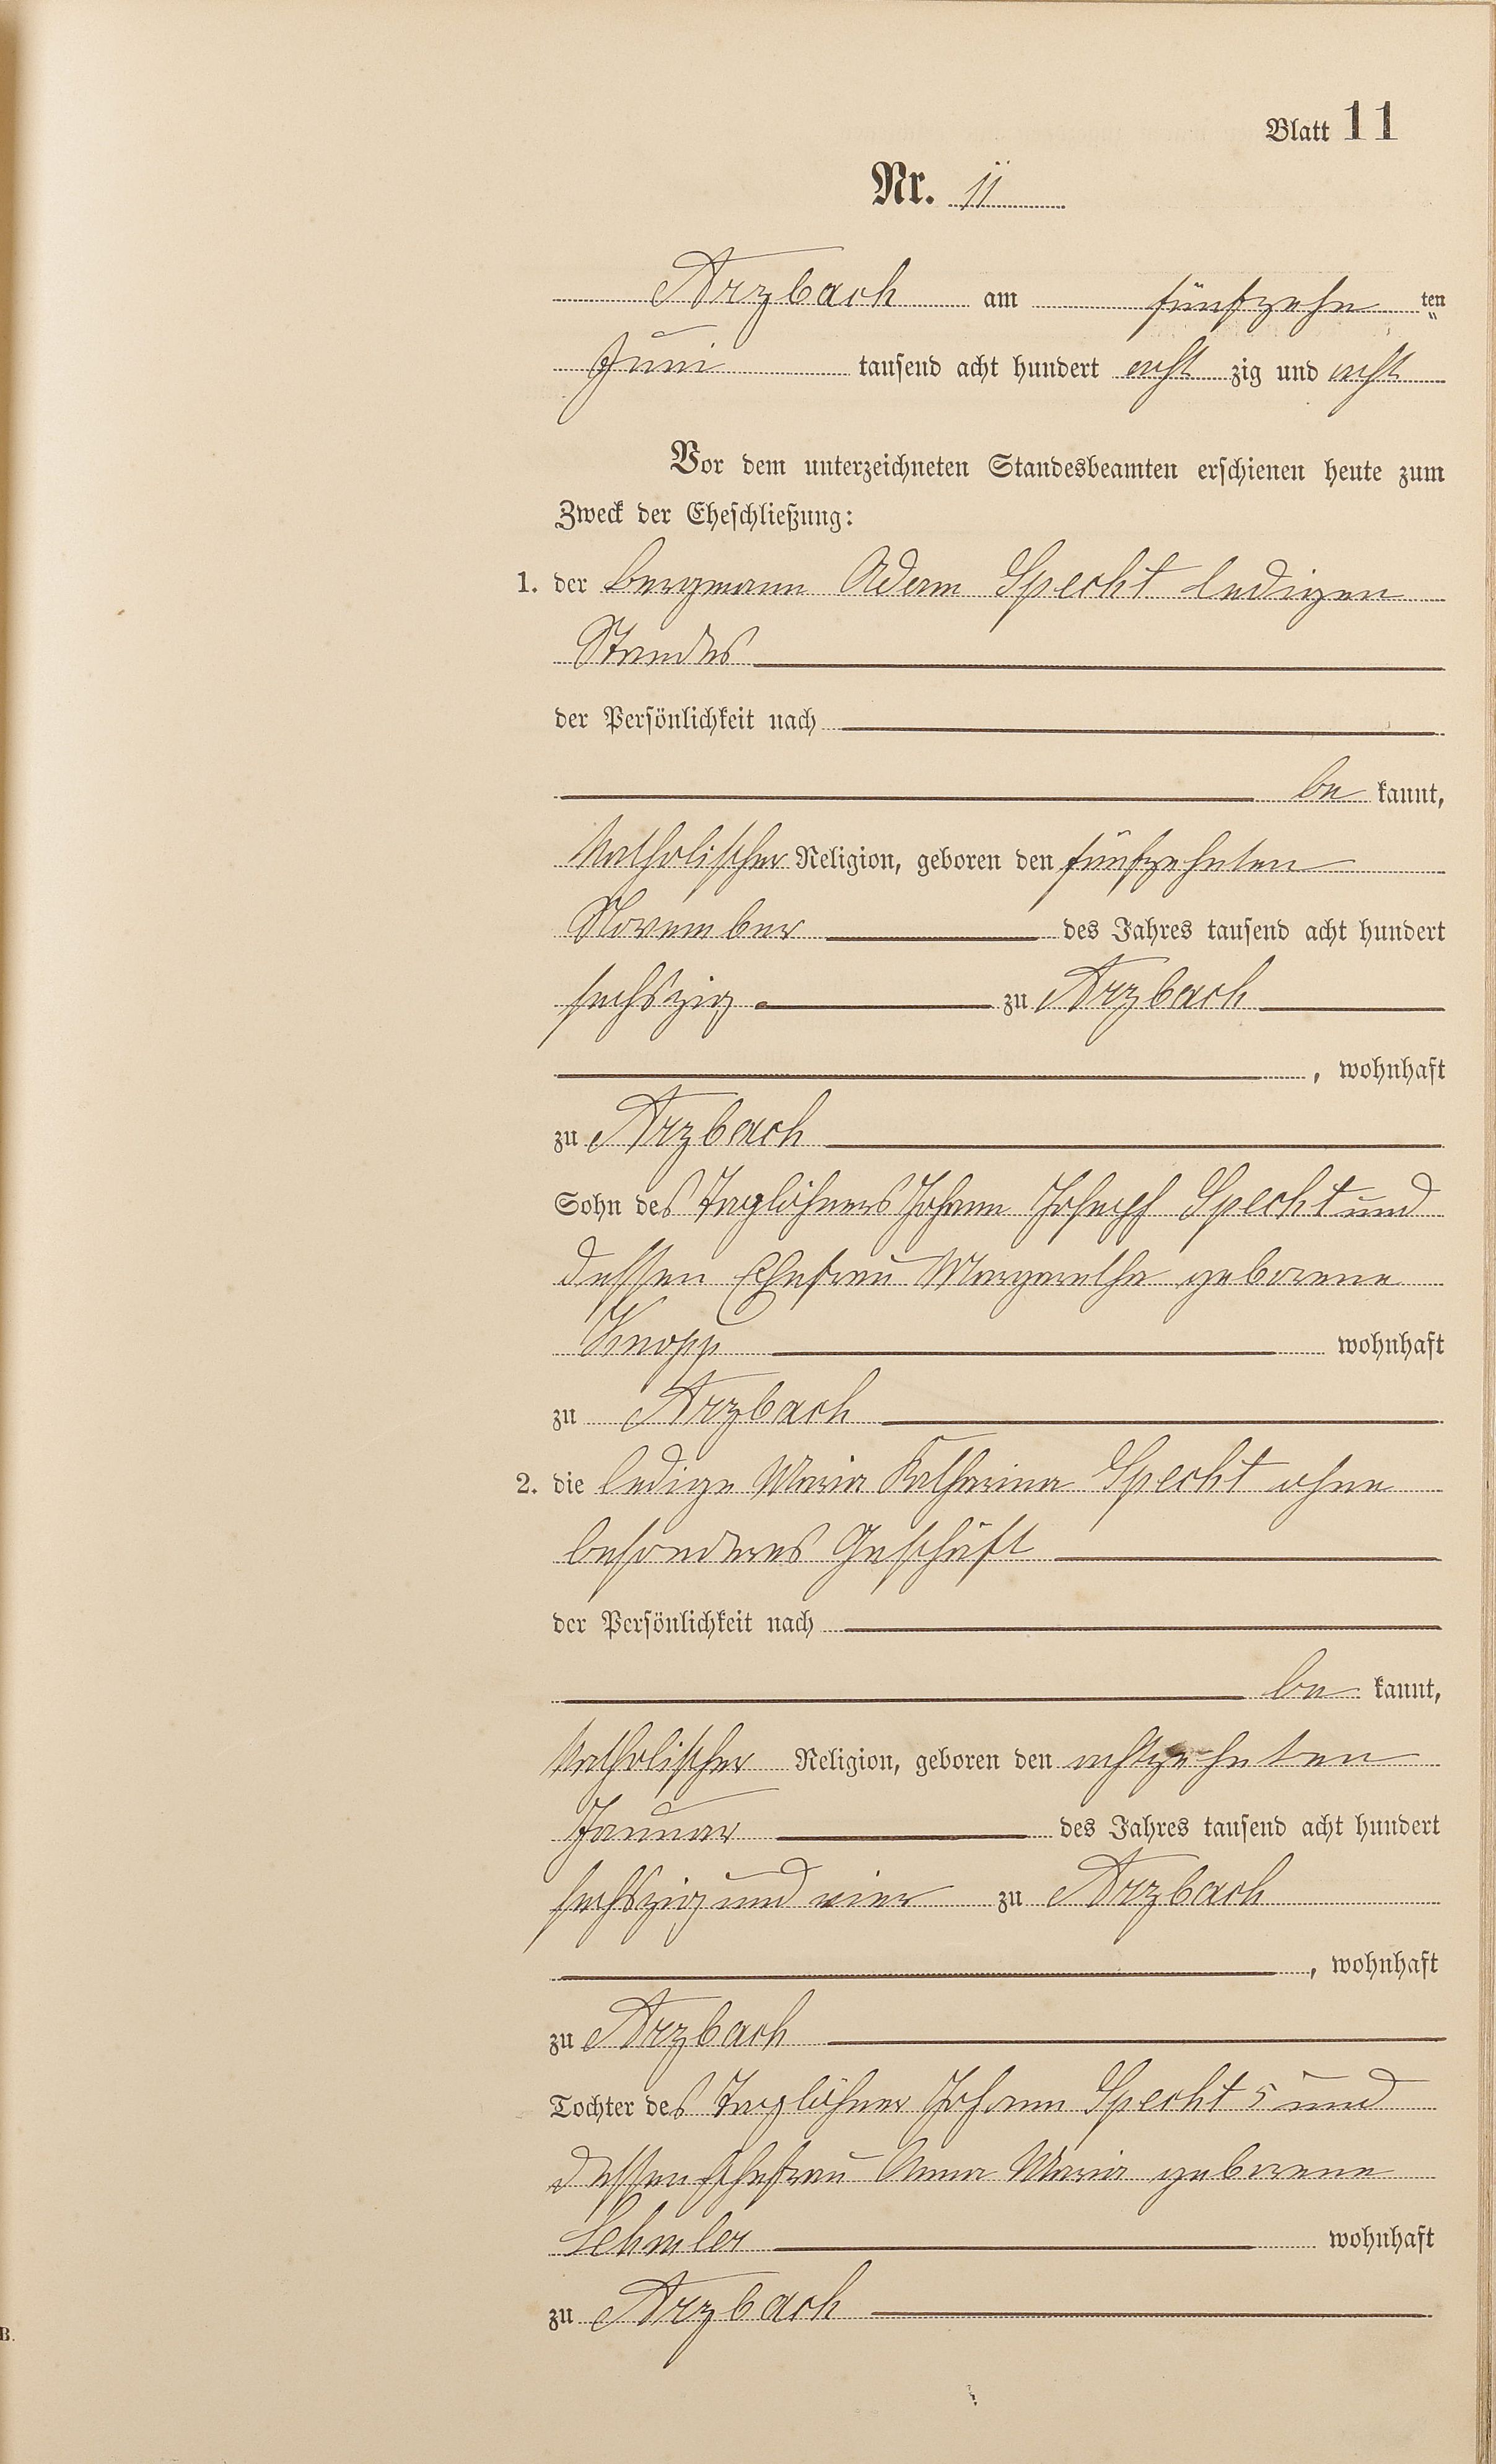 Blatt 11
Nr. 11
Arzbach am fünfzehn ten
Juni tausend acht hundert acht zig und acht
Vor dem unterzeichneten Standesbeamten erschienen heute zum
Zweck der Eheschließung:
1. der Bergmann Adam Specht ledigen
Standes
der Persönlichkeit nach
be kannt,
katholischer Religion, geboren den fünfzehnten
November des Jahres tausend acht hundert
sechszig zu Arzbach
, wohnhaft
zu Arzbach
Sohn des Taglöhners Johann Joseph Specht und
dessen Ehefrau Margaretha geborene
Knopp wohnhaft
zu Arzbach
2. die ledige Maria Katharina Specht ohne
besonderes Geschäft
der Persönlichkeit nach
be kannt,
katholischer Religion, geboren den achtzehnten
Januar des Jahres tausend acht hundert
sechszig und vier zu Arzbach
, wohnhaft
zu Arzbach
Tochter des Taglöhner Johann Specht 5 und
dessen Ehefrau Anna Maria geborene
Lehmler wohnhaft
zu Arzbach
B.